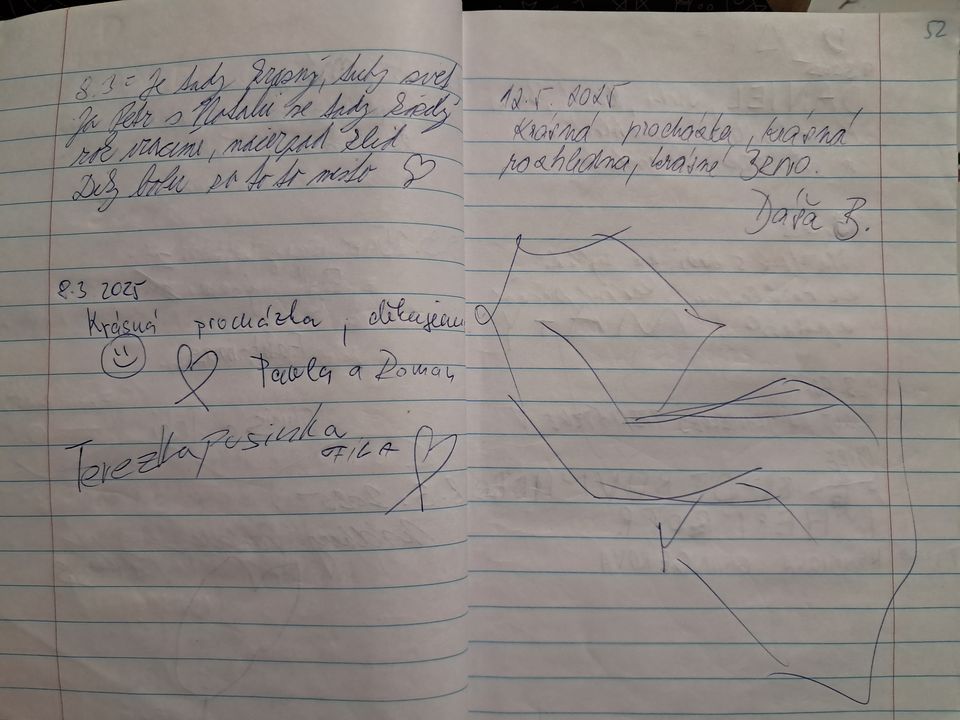 8.3 = Je tady krásný, tady svět
Já Petr s Natálií se tady každý
rok vracíme,
Díky bohu za toto místo
8.3 2025
Krásná procházka, děkujem
Pavla a Roman
Terezka pusinka
52
12.5. 2025
Krásná procházka, krásná
rozhledna, krásné Brno.
Dáša B.